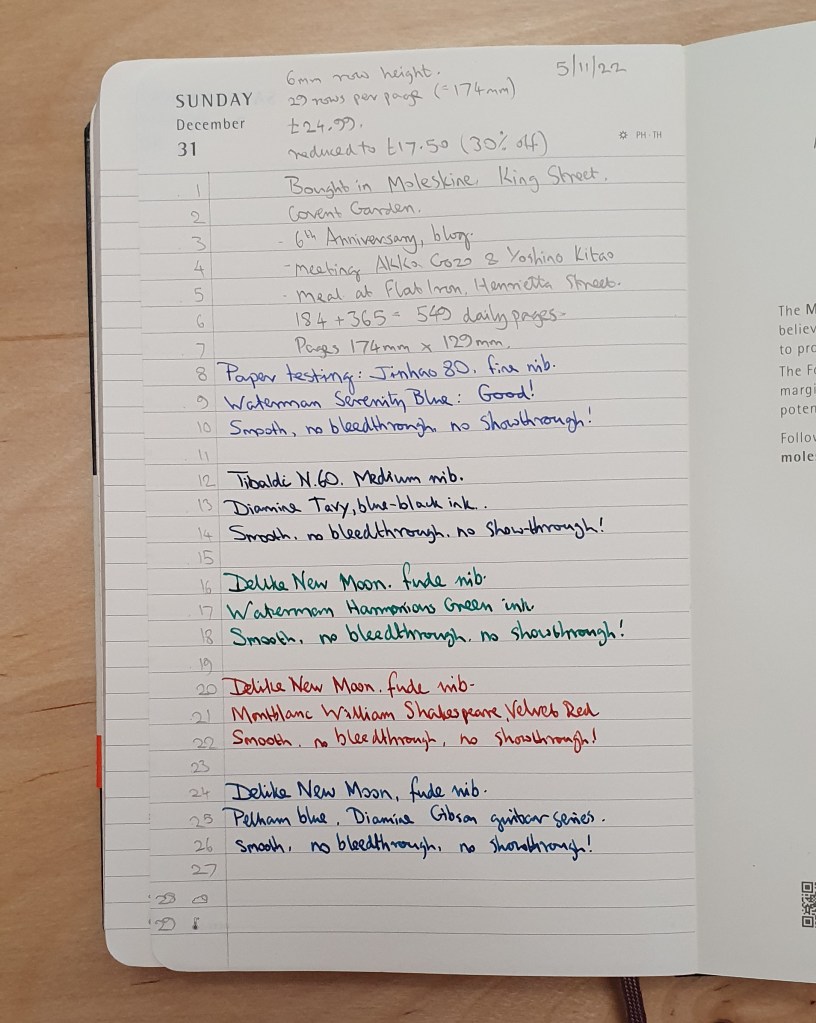 6mm row height.
5/11/22
29 rows per page (=174mm)
£24.99.
reduced to £17.50 (30% off)
SUNDAY
December
31
PH - TH
1 Bought in Moleskine, King Street.
2 Covent Garden.
3 - 6th Anniversary, blog.
4 - Meeting Akka Gozo & Yoshino Kitao
5 - Meal at Flat Iron, Henrietta Street.
6 184 + 365 = 549 daily pages-
7 Pages 174mm x 129mm.
8 Paper testing: Jinhao 80. fine nib.
9 Waterman Serenity Blue: Good!
10 Smooth, no bleedthrough, no showthrough!
11
12 Tibaldi N.60. Medium nib.
13 Diamine Tavy, blue-black ink.
14 Smooth, no bleedthrough, no show-through!
15
16 Delike New Moon. fude nib.
17 Waterman Harmonious Green ink
18 Smooth, no bleedthrough, no showthrough!
19
20 Delike New Moon. fude nib-
21 Montblanc William Shakespeare, Velvet Red
22 Smooth, no bleedthrough, no showthrough!
23
24 Delike New Moon, fude nib.
25 Pelham blue, Diamine Gibson guitar series.
26 Smooth, no bleedthrough, no showthrough!
27
28
29
The M
believ
to pro
The Fo
margi
poten
Follo
mole